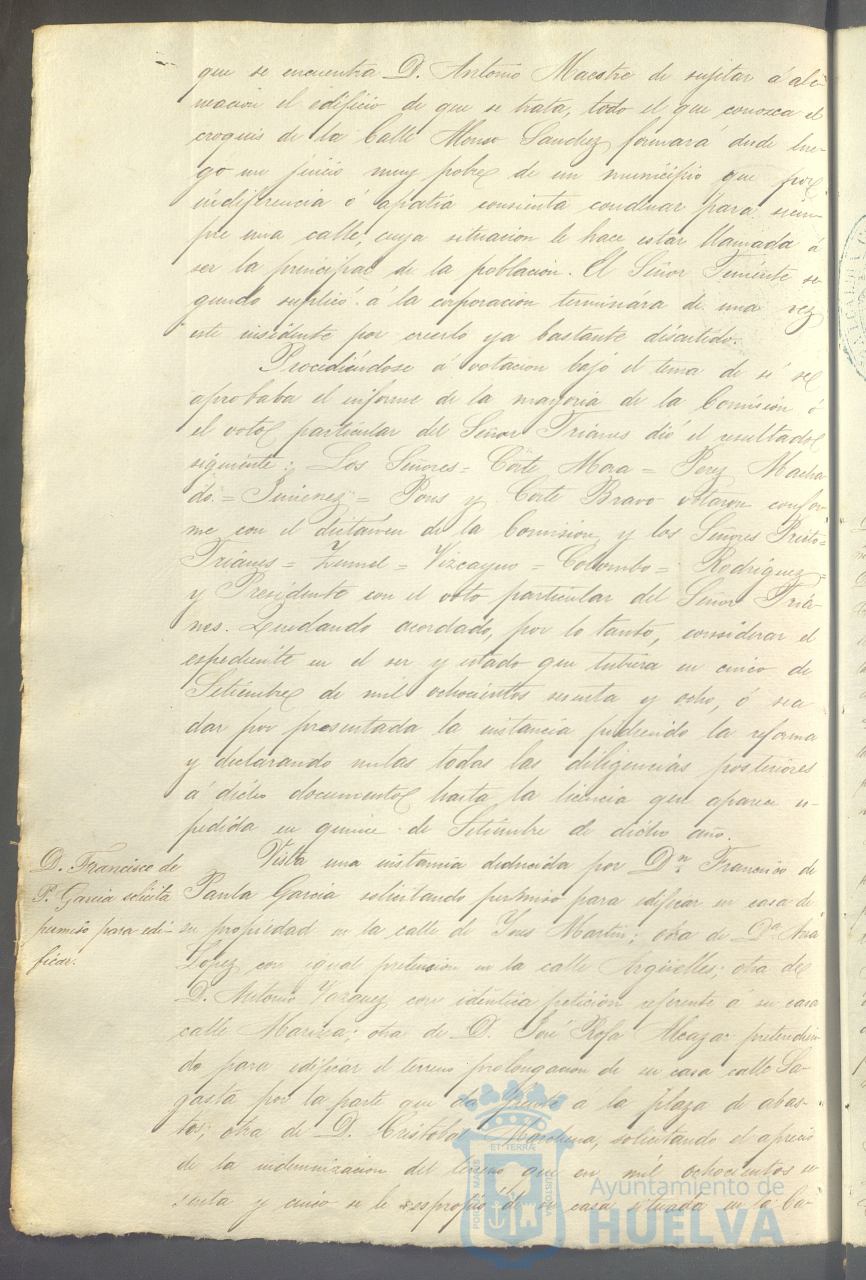 que se encuentra D. Antonio Maestre de sujetar á ali-
neacion el edificio de que se trata, todo el que conozca el
croquis de la Calle Alonso Sanchez formará desde lue-
go un juicio muy pobre de un municipio que por
indiferencia ó apatia consienta condenar para siem-
pre una calle, cuya situacion le hace estar llamada á
ser la principal de la poblacion. El Señor Teniente se-
gundo suplicó á la corporacion terminára de una vez
este insidente por creerlo ya bastante discutido.
Procediéndose á votacion bajo el tema de si se
aprobaba el informe de la mayoria de la Comision ó
el voto particular del Señor Triánes dió el resultado
siguiente: Los Señores = Córte Mora = Perez Macha-
do = Jimenez = Pons y Corte Bravo votaron confor-
me con el dictámen de la Comision, y los Señores Prieto =
Triánes = = Vizcayno = Colombo = Rodriguez =
y Presidente con el voto particular del Señor Triá-
nes. Quedando acordado, por lo tanto, considerar el
espediente en el ser y estado que tubiera en cinco de
Setiembre de mil ochocientos sesenta y ocho, ó sea
dar por presentada la instancia pidiendo la reforma
y declarando nulas todas las diligencias posteriores
á dicho documento hasta la licencia que aparece es-
pedida en quince de Setiembre de dicho año.
D. Francisco de
P. Garcia solicita
permiso para edi-
ficar.
Vista una instancia deducida por Dn. Francisco de
Paula Garcia solicitando permiso para edificar en casa de
su propiedad en la calle de Ynes Martin; otra de Da. Ana
Lopez con igual pretension en la calle Argüelles; otra de
D. Antonio Vazquez con idéntica peticion referente á su casa
calle Marina; otra de D. José Rofa Alcazar pretendien-
do para edificar el terreno prolongacion de su casa calle Sa-
gasta por la parte que da frente a la plaza de abas-
tos; otra de D. Cristobal Marchena, solicitando el aprecio
de la indemnizacion del terreno que en mil ochocientos se-
senta y cinco se le espropió de su casa situada en la Ca-
PORTUS MARIS
ET TERRÆ
CUSTODIA
Ayuntamiento de
HUELVA